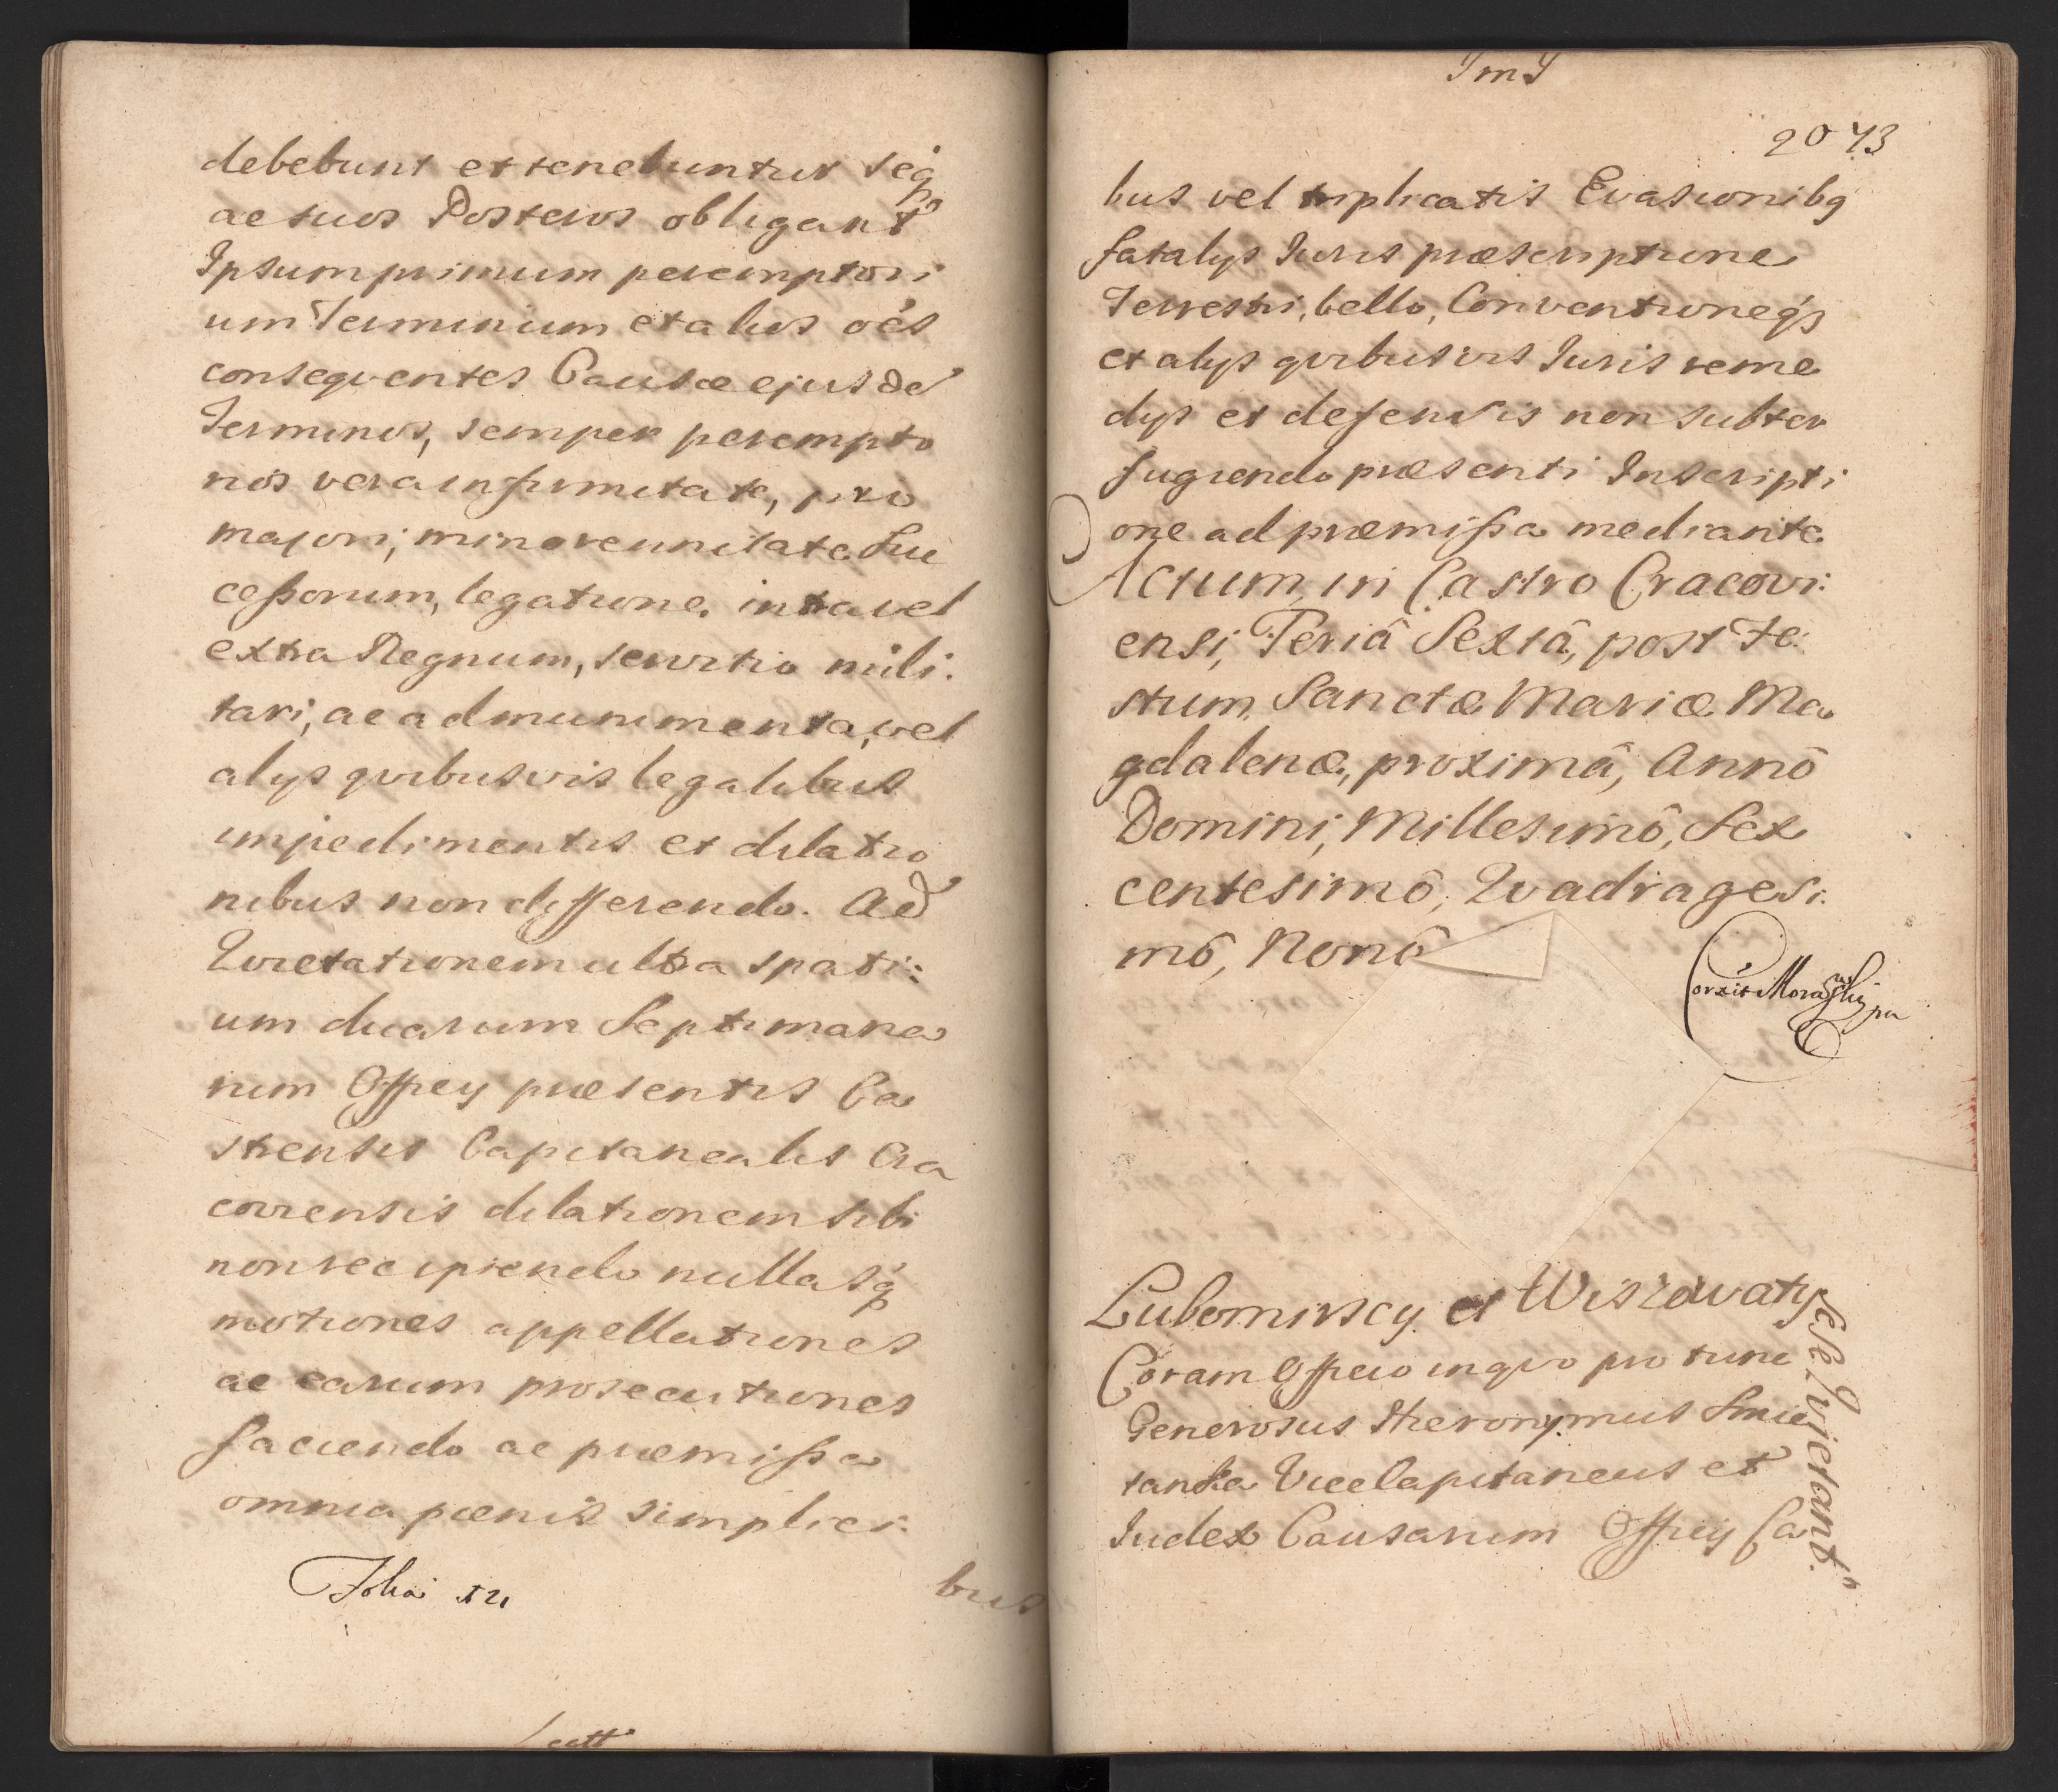 debebunt et tenebuntur seq3
ac suos Posteros obligant
Ipsum primum peremptori
um Terminum et alios oes
conseqventes Causæ ejusde
Terminos, semper perempto
rios vera infirmitate, pro
majori, minorennitate Suc
ceßorum, legatione, intra vel
extra Regnum, servitio mili:
tari, ac ad munimenta, vel
alijs qvibusvis legalibus
impedimentis et dilatio
nibus non differendo. Ad
Qvietationem ultra spati:
um duarum Septimana
rum Officij præsentis Ca
strensis Capitanealis Cra
coviensis dilationem sibi
non recipiendo nullasq3
motiones appellationes
ac earum prosecutiones
faciendo ac præmißa
omnia pænis simplici:
bus
ImJ
2073
bus vel triplicatis Evasionibq
fatalijs Iuris præscriptione
Terrestri, bello, Conventioneq3
et alijs qvibusvis Iuris reme
dijs et defensis non subter
fugiendo præsenti Inscripti
one ad præmißa mediante
Actum, in Castro Cracovi:
ensi, Feriâ Sextâ, post Fe:
stum, Sanctæ Mariæ Ma
gdalenæ, proximâ, Annô
Domini, Millesimô, Sex
centesimô, Qvadragesi:
mô, Nonô
Lubomirscy et Wiszowaty
sese Qvietant
Coram Officio in qvo pro tunc
Generosus Hieronymus Smie
tanka ViceCapitaneus et
Iudex Causarum Officij Ca